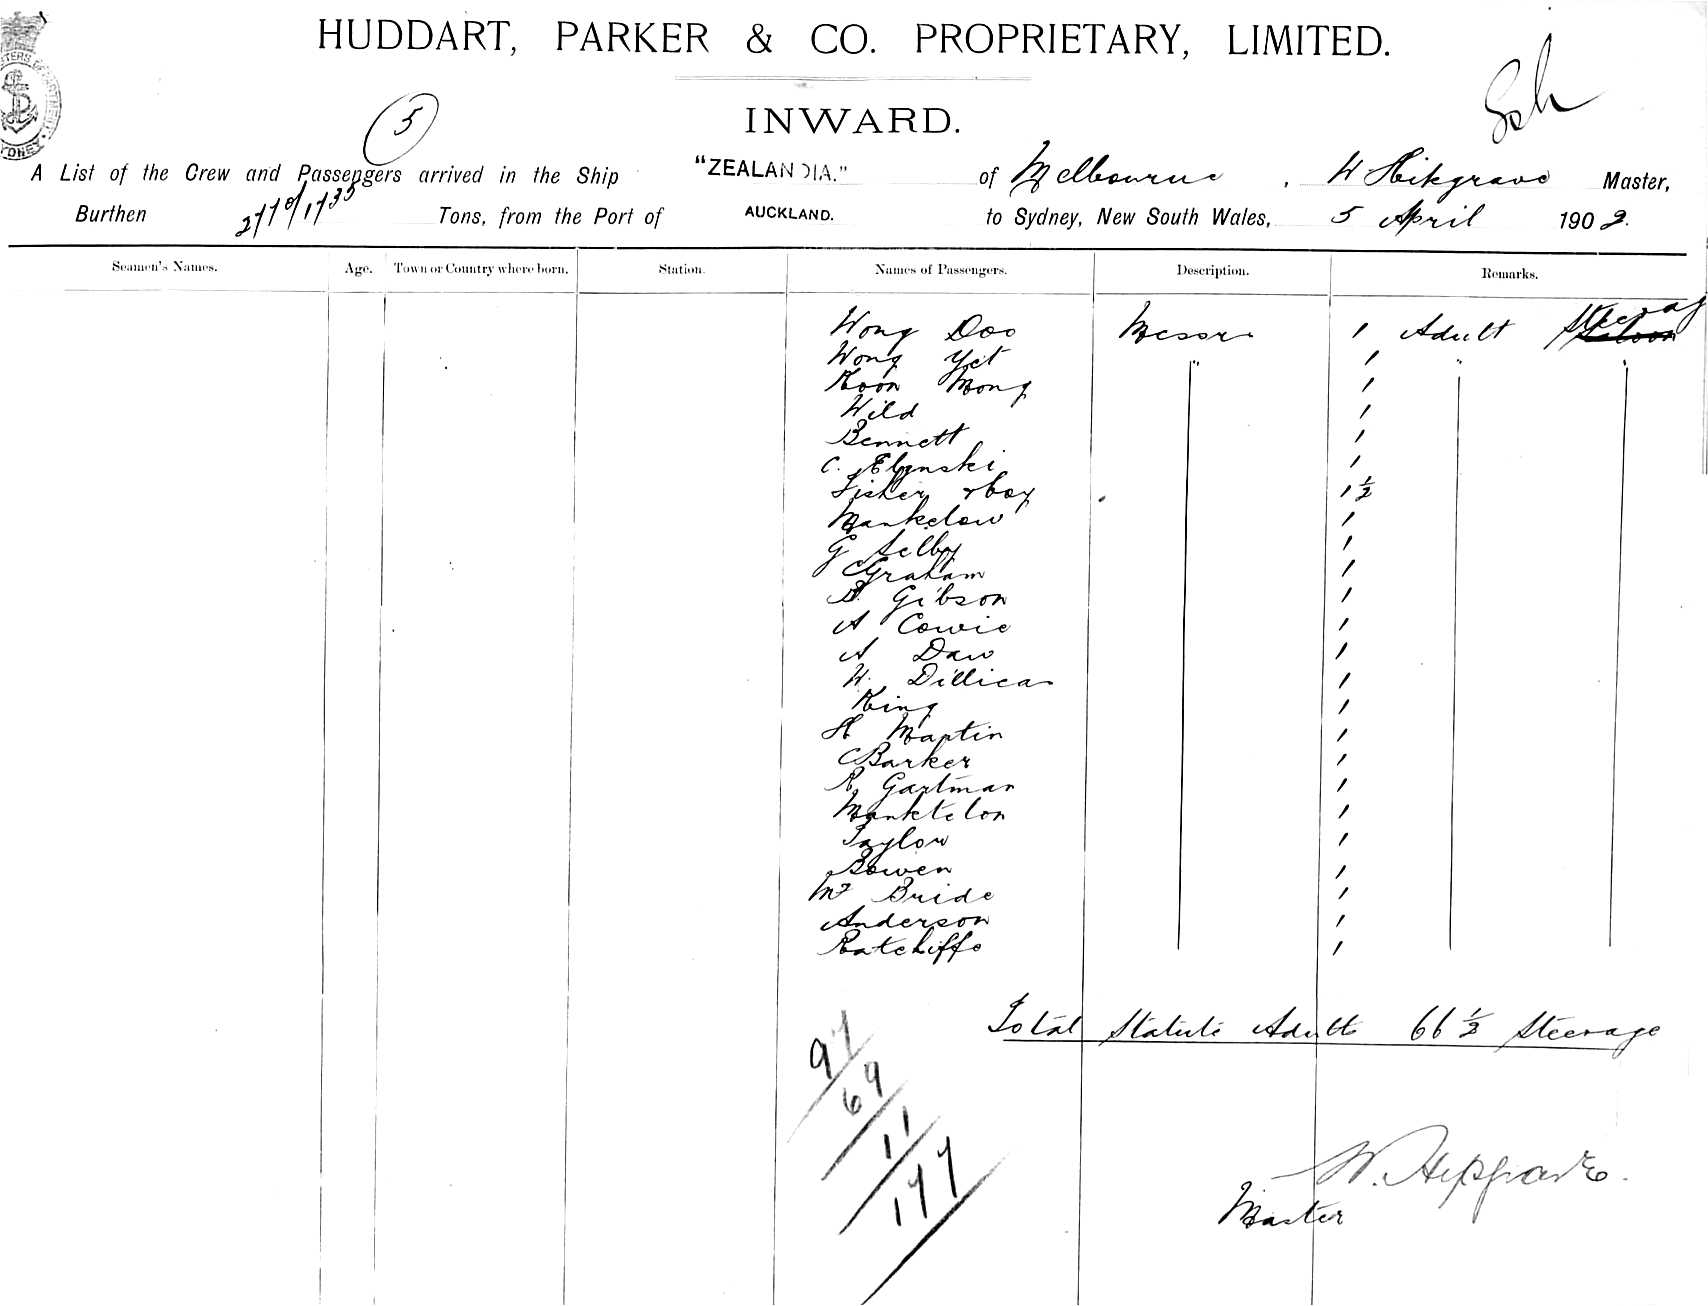 HUDDART, PARKER & CO. PROPRIETARY, LIMITED.
5
INWARD.
SYDNEY
A List of the Crew and Passengers arrived in the Ship "ZEALANDIA." of Melbourne, W Hipgrave Master,
Burthen Tons, from the Port of AUCKLAND. to Sydney, New South Wales, 5 April 1902.
Seamen's Names. Age. Town or Country where born. Station. Names of Passengers. Description. Remarks.
Wong Doo Messrs 1 Adult Steerag
Wong Yet " 1 " "
Koon Mong 1
Wild 1
Bennett 1
C. Elgnski 1
Fisher & boy 1 ½
Mankelow 1
G Selby 1
Graham 1
B. Gibson 1
A Cowie 1
A Daw 1
W. Dillica 1
King 1
H Martin 1
C Barker 1
R. Gartman 1
Manktelon 1
Taylor 1
Bowen 1
Mc Bride 1
Anderson 1
Ratcliffe 1
Total Statute Adults 66 ½ Steerage
97
69
11
177
W. Hipgrave.
Master